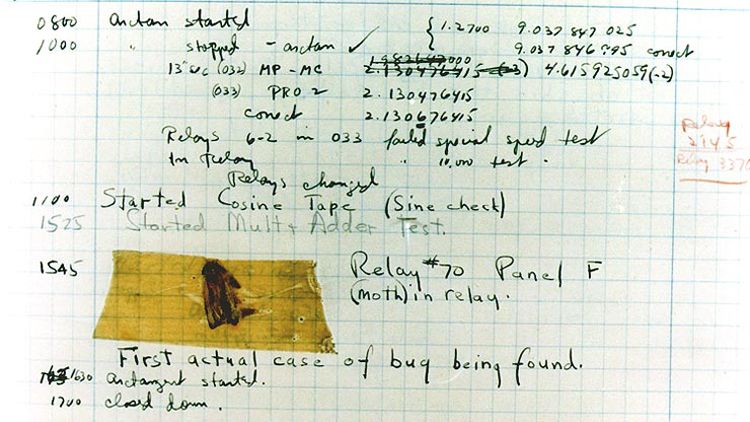 0800 arctan started { 1.2700 9.037 847 025
1000 " stopped - arctan ✓ 9.037 846 995 conect
13"uc (032) MP - MC 2.130476415 (-3) 4.615925059(-2)
(033) PRO 2 2.130476415
conect 2.130676415
Relays 6-2 in 033 failed special speed test
In Relay " 10,000 test .
Relays changed
Relay
2145
Relay 3370
1100 Started Cosine Tape (Sine check)
1525 Started Mult + Adder Test.
1545 Relay #70 Panel F
(moth) in relay.
First actual case of bug being found.
1630 arctangent started.
1700 closed down.